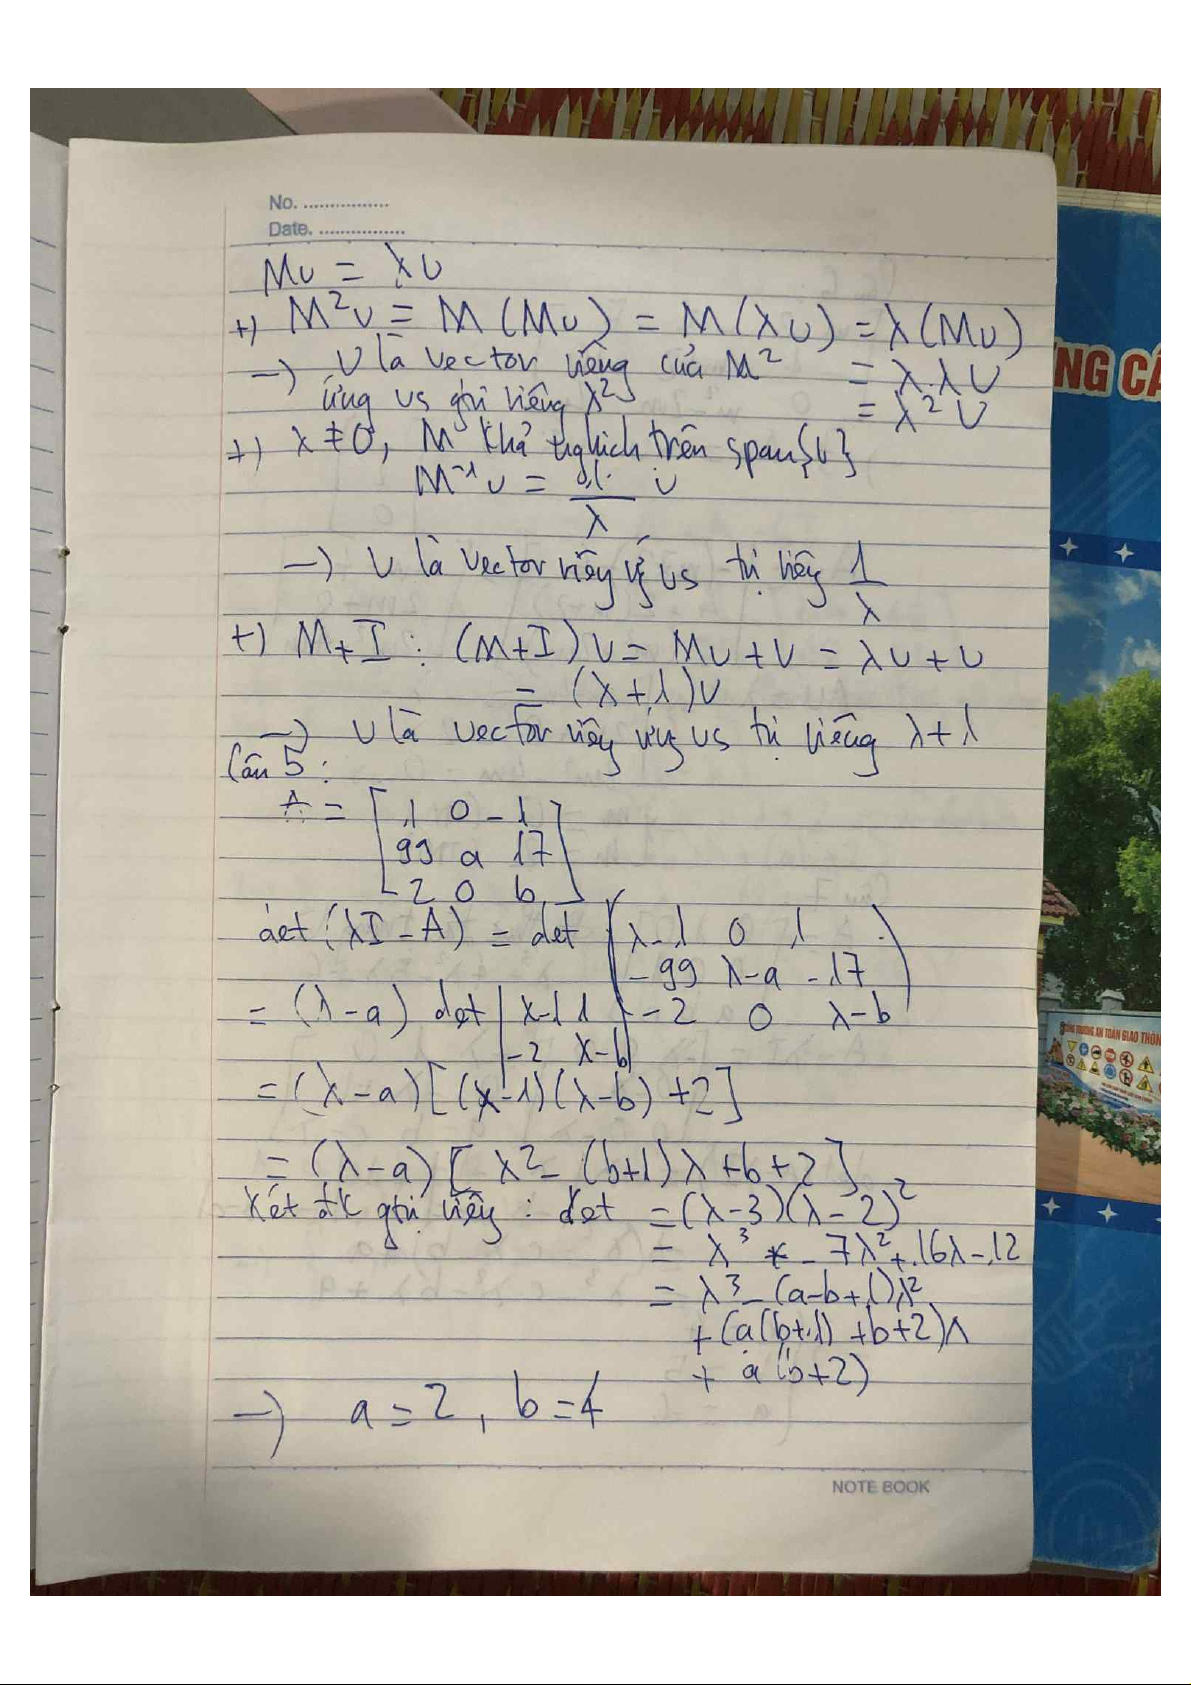 No. ................
Date. ................
Mv = λv
+) M²v = M(Mv) = M(λv) = λ(Mv)
→ v là vector riêng của M² = λ.λv
ứng vs gtri riêng λ² = λ²v
+) λ ≠ 0, M khả nghịch trên span{v}
M⁻¹v = 1/λ v
→ v là vector riêng ứ vs trị riêng 1/λ
+) M+I : (M+I)v = Mv + v = λv + v
= (λ+1)v
→ v là vector riêng ứng vs trị riêng λ+1
Câu 5:
A = [1 0 -1
99 a 17
2 0 b]
det(λI - A) = det (λ-1 0 1
-99 λ-a -17
-2 0 λ-b)
= (λ-a) det |λ-1 1
-2 λ-b|
= (λ-a)[(λ-1)(λ-b) + 2]
= (λ-a)[λ² - (b+1)λ + b + 2]
Xét đk gtri riêng : det = (λ-3)(λ-2)²
= λ³ - 7λ² + 16λ - 12
= λ³ - (a-b+1)λ²
+ (a(b+1) + b+2)λ
+ a(b+2)
→ a = 2, b = 4
NOTE BOOK
NG CÁ
TRƯỜNG AN TOÀN GIAO THÔN